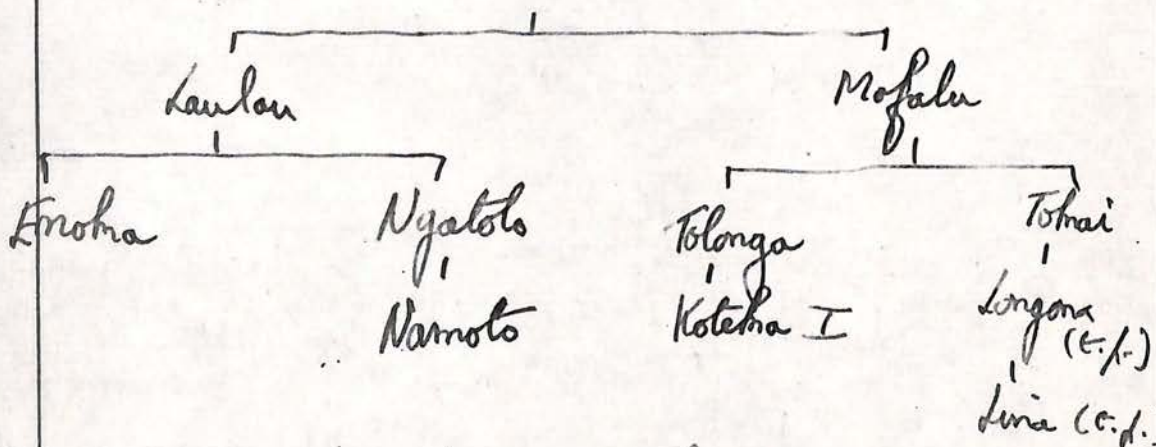 Laulau Mofalu
Emoha Nyatoto Tolonga Tomai
Namoto Koteha I Longona
(E.f.)
Liria (E.f.